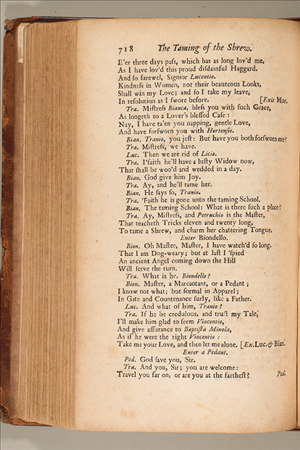 718 The Taming of the Shrew.
E'er three days pass, which has as long lov'd me,
As I have lov'd this proud disdainful Haggard.
And so farewel, Signior Lucentio.
Kindness in Women, not their beauteous Looks,
Shall win my Love; and so I take my leave,
In resolution as I swore before. [Exit Hor.
Tra. Mistress Bianca, bless you with such Grace,
As longeth to a Lover's blessed Case:
Nay, I have ta'en you napping, gentle Love,
And have forsworn you with Hortensio.
Bian. Tranio, you jest: But have you both forsworn me?
Tra. Mistress, we have.
Luc. Then we are rid of Licio.
Tra. I'faith he'll have a lusty Widow now,
That shall be woo'd and wedded in a day.
Bian. God give him Joy.
Tra. Ay, and he'll tame her.
Bian. He says so, Tranio.
Tra. 'Faith he is gone unto the taming School.
Bian. The taming School: What is there such a place?
Tra. Ay, Mistress, and Petruchio is the Master,
That teacheth Tricks eleven and twenty long,
To tame a Shrew, and charm her chattering Tongue.
Enter Biondello.
Bion. Oh Master, Master, I have watch'd so long,
That I am Dog-weary; but at last I 'spied
An ancient Angel coming down the Hill
Will serve the turn.
Tra. What is he, Biondello?
Bion. Master, a Marcantant, or a Pedant;
I know not what; but formal in Apparel;
In Gate and Countenance surly, like a Father.
Luc. And what of him, Tranio?
Tra. If he be credulous, and trust my Tale,
I'll make him glad to seem Vincentio,
And give assurance to Baptista Minola,
As if he were the right Vincentio:
Take me your Love, and then let me alone. [Ex. Luc. & Bian.
Enter a Pedant.
Ped. God save you, Sir.
Tra. And you, Sir; you are welcome:
Travel you far on, or are you at the farthest?
Ped.